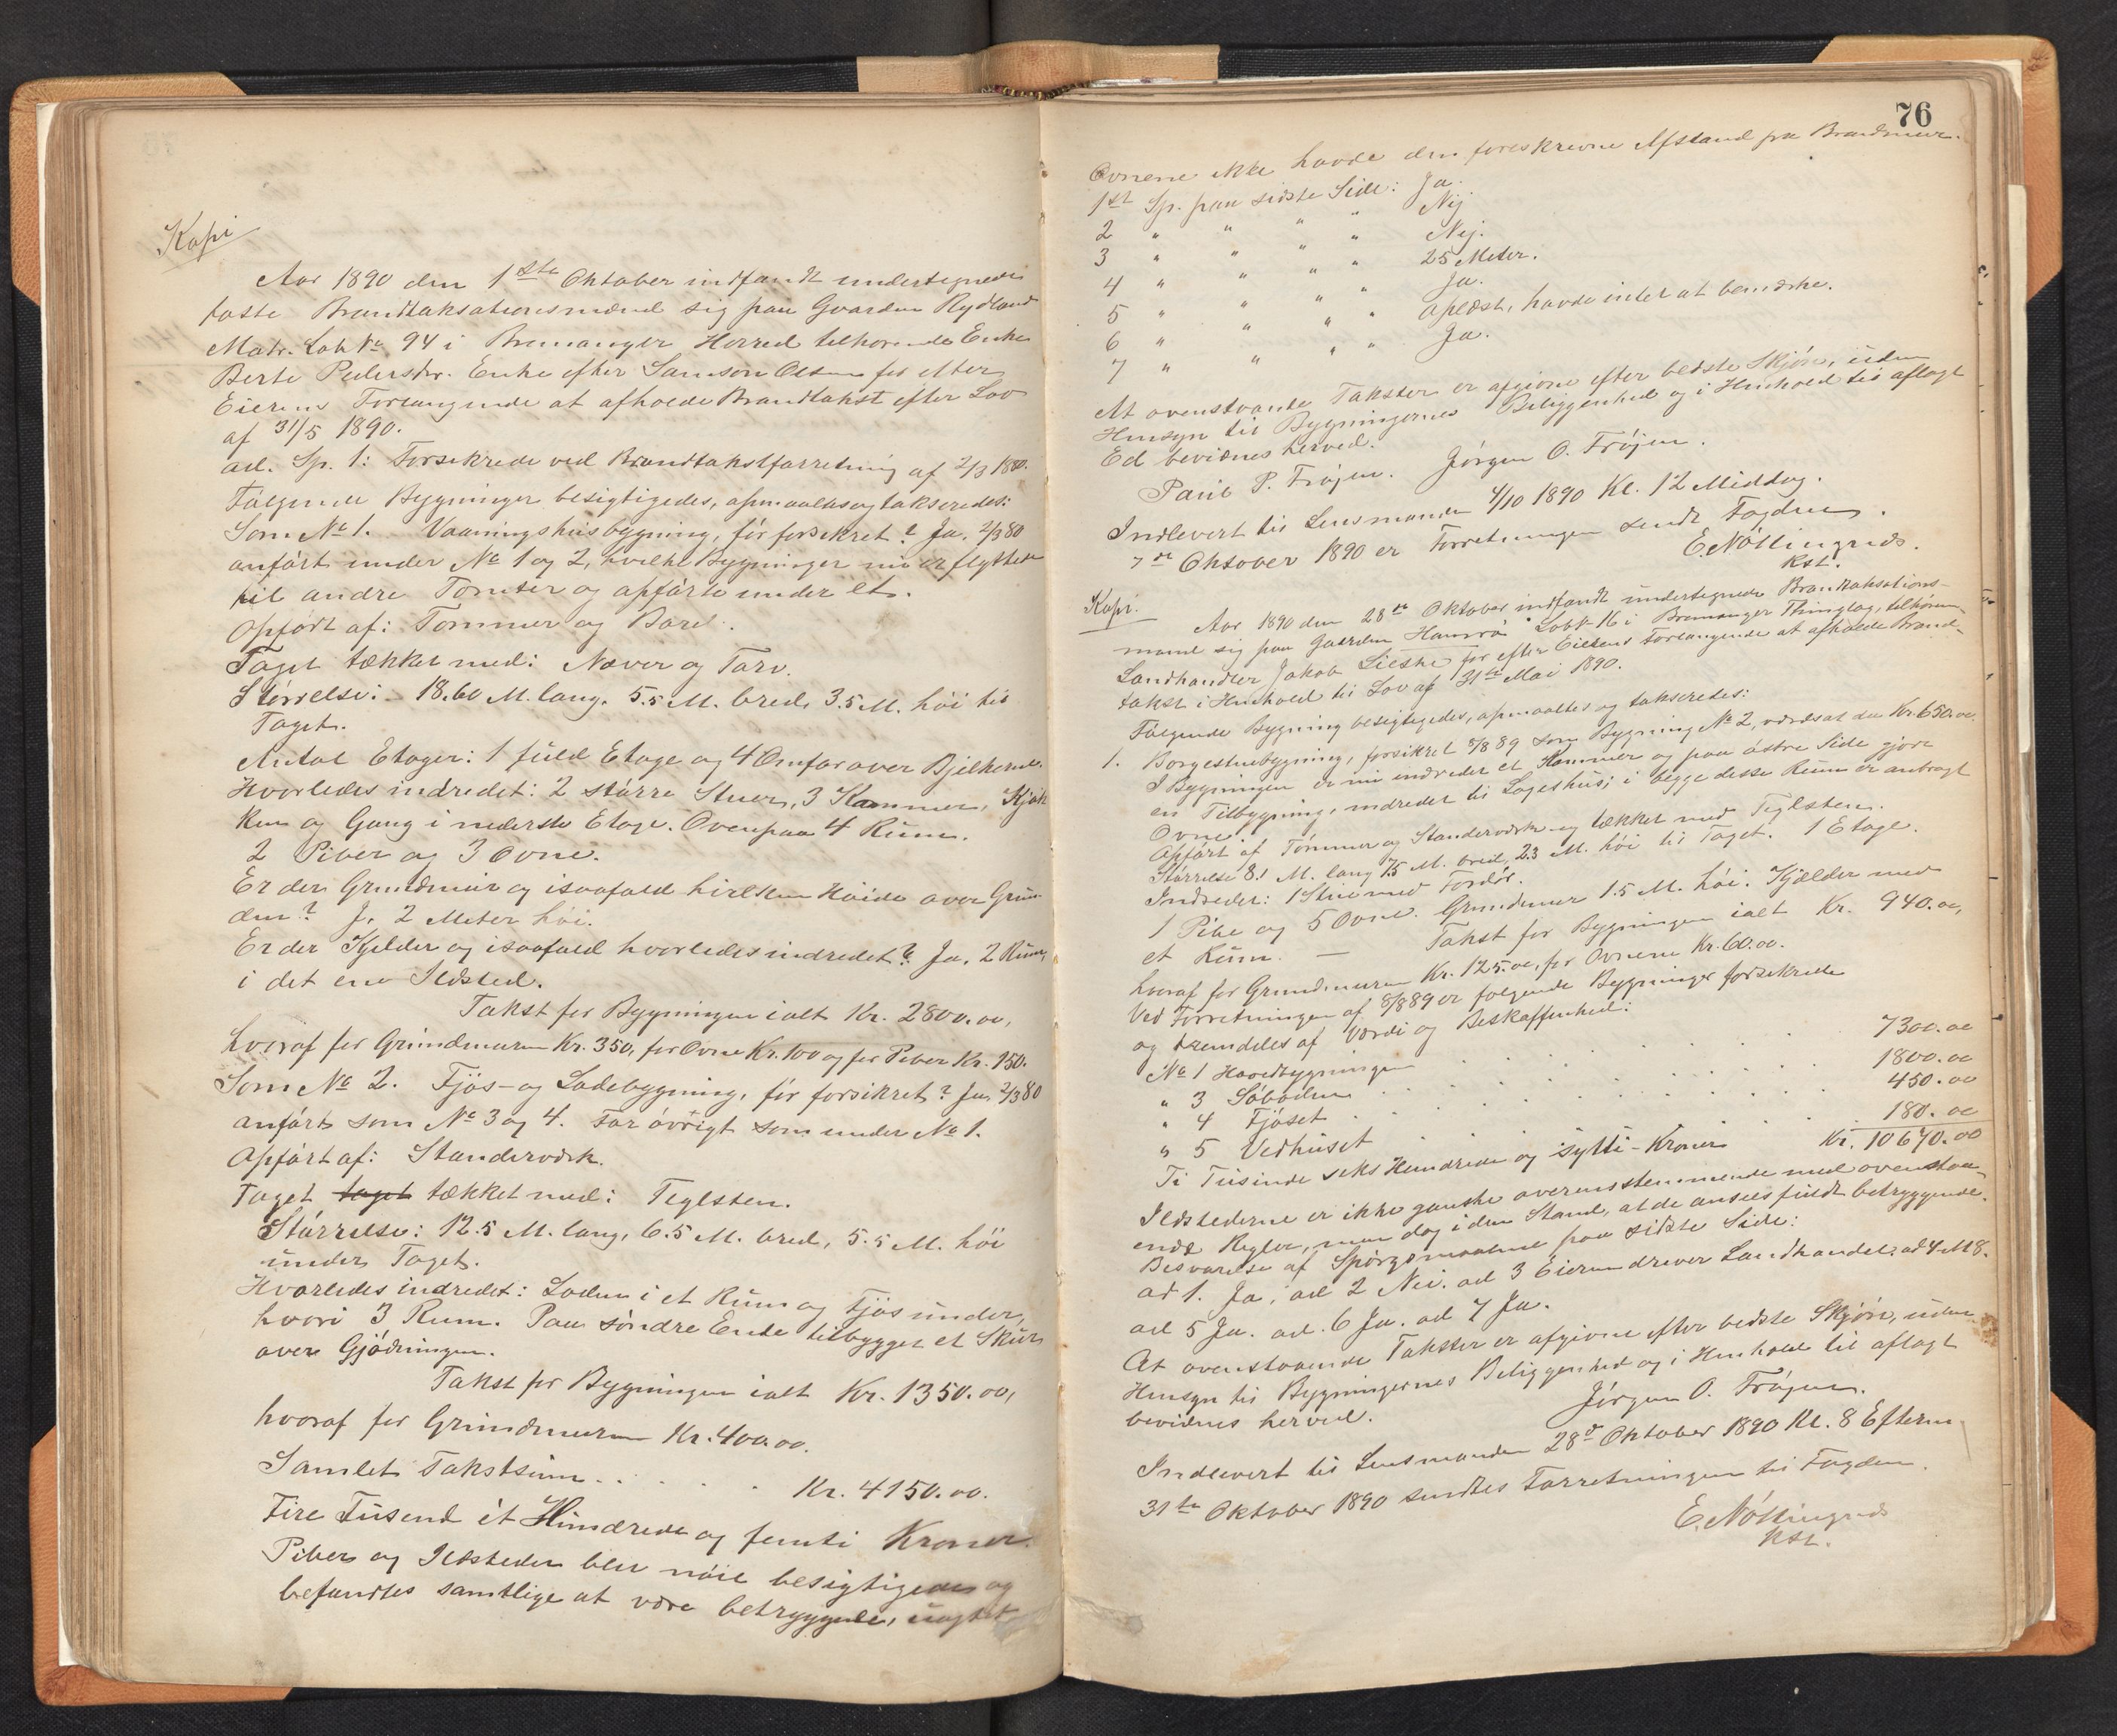 Kopi
Aar 1890 den 1ste Oktober indfandt undertegnede
faste Brandtaksationsmænd sig paa Gaarden Rydland
Matr. Løb No 94 i Bremanger Herred tilhørende Enke
Berte Pedersdr. Enke efter Samson Olsen for efter
Eierens Forlangende at afholde Brandtakst efter Lov
af 31/5 1890.
ad. Sp. 1: Forsikrede ved Brandtakstforretning af 2/3 1880.
Følgende Bygninger besigtigedes, opmaaltes og takseredes:
Som No 1. Vaaningshusbygning, før forsikret? Ja. 2/3 80
anført under No 1 og 2, hvilke Bygninger nu er flyttede
til andre Tomter og opførte under et.
Opført af: Tømmer og Bord.
Taget tækket med: Næver og Torv.
Størrelse: 18.60 M. lang. 5.5 M. bred, 3.5 M. høi til
Taget.
Antal Etager: 1 fuld Etage og 4 Omfar over Bjelkerne.
Hvorledes indredet: 2 større Stuer, 3 Kammer, Kjøk
ken og Gang i nederste Etage. Ovenpaa 4 Rum.
2 Piber og 3 Ovne.
Er der Grundmur og isaafald hvilken Høide over Grun-
den? J. 2 Meter høi.
Er der Kjelder og isaafald hvorledes indredet? Ja. 2 Rum,
i det ene Ildsted.
Takst for Bygningen ialt Kr. 2800.00,
hvoraf for Grundmuren Kr. 350, for Ovne Kr. 100 og for Piber Kr. 150.
Som No 2. Fjøs- og Ladebygning, før forsikret? Ja. 2/3 80
anført som No 3 og 4. For øvrigt som under No 1.
Opført af: Standerværk.
Taget taget tækket med: Teglsten.
Størrelse: 12.5 M. lang, 6.5 M. bred, 5.5 M. høi
under Taget.
Hvorledes indredet: Laden i et Rum og Fjøs under,
hvori 3 Rum. Paa søndre Ende tilbygget et Skur
over Gjødningen.
Takst for Bygningen ialt Kr. 1350.00,
hvoraf for Grundmuren Kr. 400.00.
Samlet Takstsum . . . . Kr. 4150.00.
Fire Tusend ét Hundrede og femti Kroner.
Piber og Ildsteder blev nøie besigtigede og
befandtes samtlige at være betryggende, uagtet
76
Ovnene ikke havde den foreskrevne Afstand fra Brandmur.
1st Sp. paa sidste Side: Ja.
2 " " " " Nej
3 " " " " Nej.
4 " " " " 25 Meter.
5 " " " " Ja.
6 " " " " Oplæst, havde intet at bemærke.
7 " " " " Ja.
At ovenstaaende Takster er afgivne efter bedste Skjøn, uden
Hensyn til Bygningernes Beliggenhed og i Henhold til aflagt
Ed bevidnes herved.
Paul P. Frøjen. Jørgen O. Frøjen.
Indlevert til Lensmanden 4/10 1890 Kl. 12 Middag.
7de Oktober 1890 er Forretningen sendt Fogden.
E. Nøttingnes.
Kst.
Kopi.
Aar 1890 den 28de Oktober indfandt undertegnede Brandtaksations-
mænd sig paa Gaarden Hamrø Løbk 16 i Bremanger Thinglag, tilhøren-
Landhandler Jakob Lieske for efter Eierens Forlangende at afholde Brand-
takst i Henhold til Lov af 31te Mai 1890.
Følgende Bygning besigtigedes, opmaaltes og takseredes:
1. Borgestuebygning, forsikret 8/8 89 som Bygning No 2, værdsat da Kr. 650.00.
I Bygningen er nu indredet et Kammer og paa østre Side gjort
en Tilbygning, indredet til Logishus; i begge disse Rum er anbragt
Ovne.
Opført af Tømmer og Standerværk og tækket med Teglsten.
Størrelse 8.1 M. lang 7.5 M. bred, 2.3 M. høi til Taget. 1 Etage.
Indredet: 1 Stue med Fordør.
1 Pibe og 5 Ovne. Grundmur 1.5 M. høi. Kjælder med
et Rum. — Takst for Bygningen ialt Kr. 940.00,
hvoraf for Grundmuren Kr. 125.00, for Ovnene Kr. 60.00.
Ved Forretningen af 8/8 89 er følgende Bygninger forsikrede
og fremdeles af Værdi og Beskaffenhed:
No 1 Hovedbygningen . . . . . 7300.00
" 3 Søboden . . . . . 1800.00
" 4 Fjøset . . . . . 450.00
" 5 Vedhuset . . . . . 180.00
Ti Tusinde seks Hundrede og sytti-Kroner Kr. 10670.00
Ildstederne er ikke ganske overensstemmende med ovenstaa-
ende Regler, men dog i den Stand, at de ansees fuldt betryggende.
Besvarelse af Spørgsmaalene paa sidste Side:
ad 1. Ja, ad 2 Nei. ad 3 Eieren driver Landhandel. ad 4 M 8.
ad 5 Ja. ad. 6 Ja. ad 7 Ja.
At ovenstaaende Takster er afgivne efter bedste Skjøn, uden
Hensyn til Bygningernes Beliggenhed og i Henhold til aflagt
bevidnes herved. Jørgen O. Frøjen.
Indlevert til Lensmanden 28de Oktober 1890 Kl. 8 Efterm
31te Oktober 1890 sendtes Forretningen til Fogden.
E. Nøttingnes
Kst.